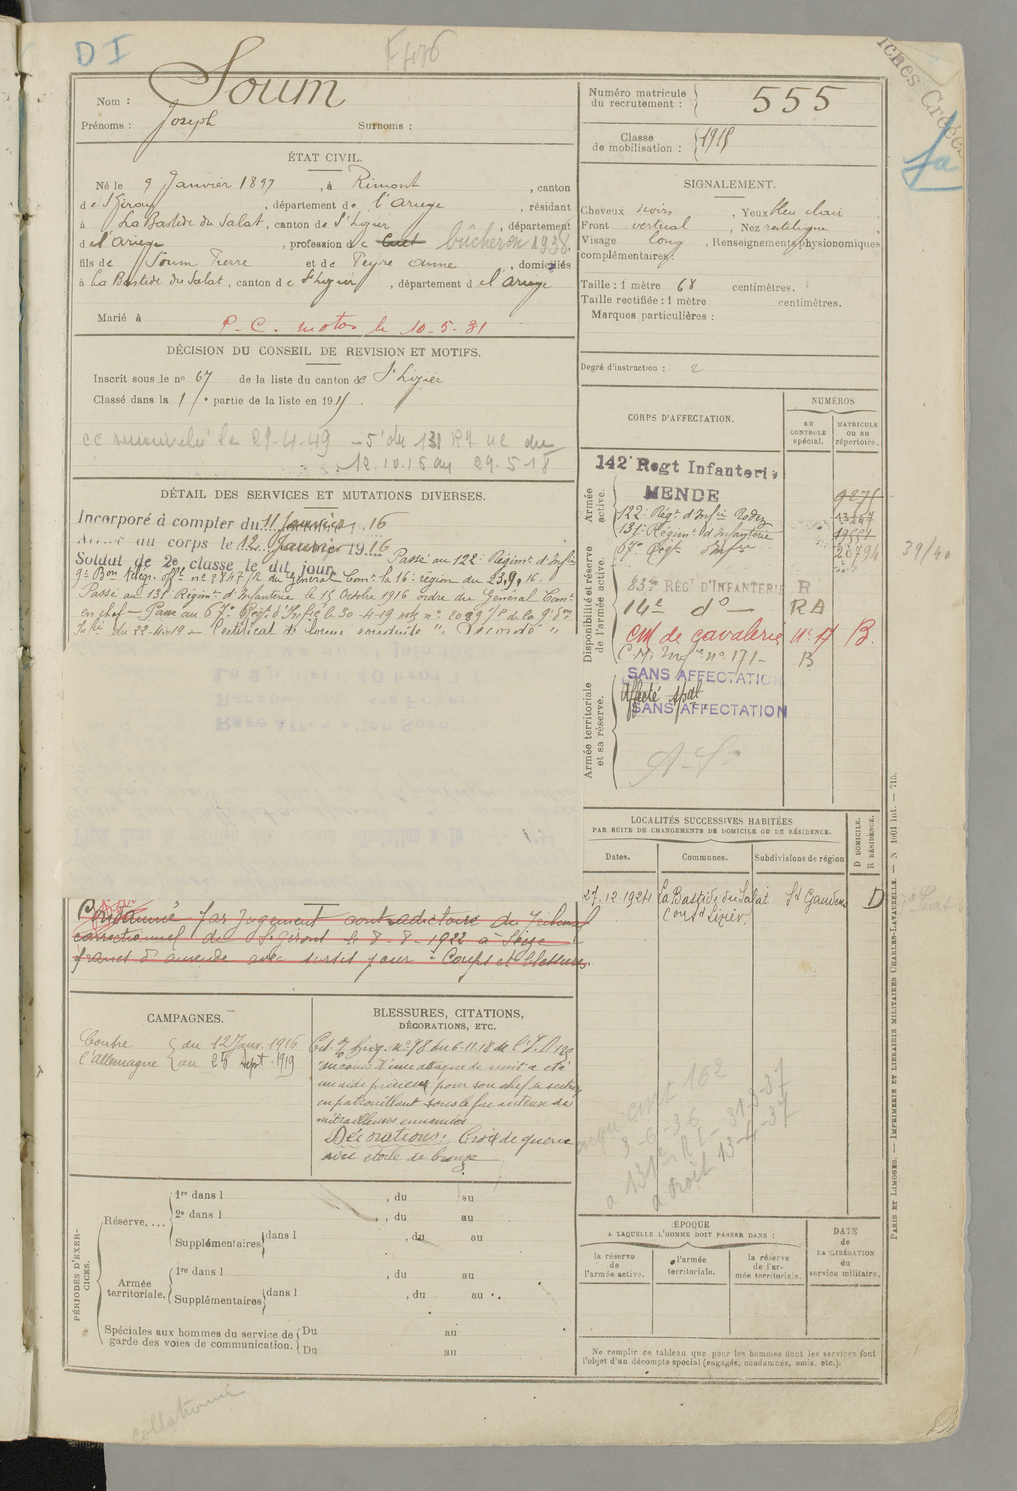 DI
Nom : Soum
Prénoms : Joseph Surnoms :
ÉTAT CIVIL.
Né le 9 Janvier 1897, à Rimont, canton
de St Girons, département de l'Ariège, résidant
à La Bastide du Salat, canton de St Lizier, département
de l'Ariège, profession de bûcheron 1938
fils de Soum Pierre et de Peyre Anne, domiciliés
à La Bastide du Salat, canton de St Lizier, département de l'Ariège
Marié à
P.C. motos le 10-5-31
DÉCISION DU CONSEIL DE REVISION ET MOTIFS.
Inscrit sous le no 67 de la liste du canton de St Lizier
Classé dans la 1re partie de la liste en 191
DÉTAIL DES SERVICES ET MUTATIONS DIVERSES.
Incorporé à compter du 11 Janvier 16
au corps le 12 Janvier 1916
Soldat de 2e classe le dit jour. Passé au 122e Régiment d'Infie
9e Bon Télégr. offl no 9847/R du Général Comt la 16e région du 23.9.16.
Passé au 131e Régimt d'Infanterie le 15 Octobre 1916 ordre du Général Comt
en chef — Passé au 67e Régt d'Infie le 30-4-19 note no 2089
du 22-4-19 — Certificat de bonne conduite "Accordé"
Condamné par jugement contradictoire du Tribunal
correctionnel de St Girons le 8-8-1922 à Seize
francs d'amende avec sursis pour : Coups et blessures.
CAMPAGNES.
Contre l'Allemagne
du 12 Janv. 1916
au 25 Sept. 1919
BLESSURES, CITATIONS,
DÉCORATIONS, ETC.
Au cours d'une attaque de nuit a été
un aide précieux pour son chef de section
en patrouillant sous le feu intense de
mitrailleuses ennemies
Décorations : Croix de guerre
avec étoile de bronze
PÉRIODES D'EXERCICES.
Réserve....
1re dans l , du au
2e dans l , du au
Supplémentaires dans l , du au
Armée territoriale.
1re dans l , du au
Supplémentaires dans l , du au
Spéciales aux hommes du service de garde des voies de communication.
Du au
Du au
collationné
Numéro matricule du recrutement : 555
Classe de mobilisation : 1915
SIGNALEMENT.
Cheveux noirs, Yeux bleu clair,
Front vertical, Nez rectiligne,
Visage long, Renseignements physionomiques
complémentaires :
Taille : 1 mètre 68 centimètres.
Taille rectifiée : 1 mètre centimètres.
Marques particulières :
Degré d'instruction : 2
CORPS D'AFFECTATION.
NUMÉROS
AU CONTROLE spécial.
MATRICULE OU AU répertoire.
Armée active.
142e Regt Infanterie
MENDE
122e Régt d'Infie Rodez
131e Régiment d'Infanterie
67e Régt Infie 20794
39/40
Disponibilité et réserve de l'armée active.
83me REG. D'INFANTERIE R
14e do — RA
CM de cavalerie no 17 B.
C.M. Infie no 171 — B
SANS AFFECTATION
Armée territoriale et sa réserve.
Affecté spal
SANS AFFECTATION
LOCALITÉS SUCCESSIVES HABITÉES
PAR SUITE DE CHANGEMENTS DE DOMICILE OU DE RÉSIDENCE.
D DOMICILE. R RÉSIDENCE.
Dates. Communes. Subdivisions de région
27.12.1924 La Bastide du Salat St Gaudens D
Con St Lizier
ÉPOQUE
A LAQUELLE L'HOMME DOIT PASSER DANS :
la réserve de l'armée active.
l'armée territoriale.
la réserve de l'armée territoriale.
DATE de LA LIBÉRATION du service militaire.
Ne remplir ce tableau que pour les hommes dont les services font
l'objet d'un décompte spécial (engagés, condamnés, omis, etc.).
PARIS ET LIMOGES. — IMPRIMERIE ET LIBRAIRIE MILITAIRES CHARLES-LAVAUZELLE. — N 1001 int. — 715.